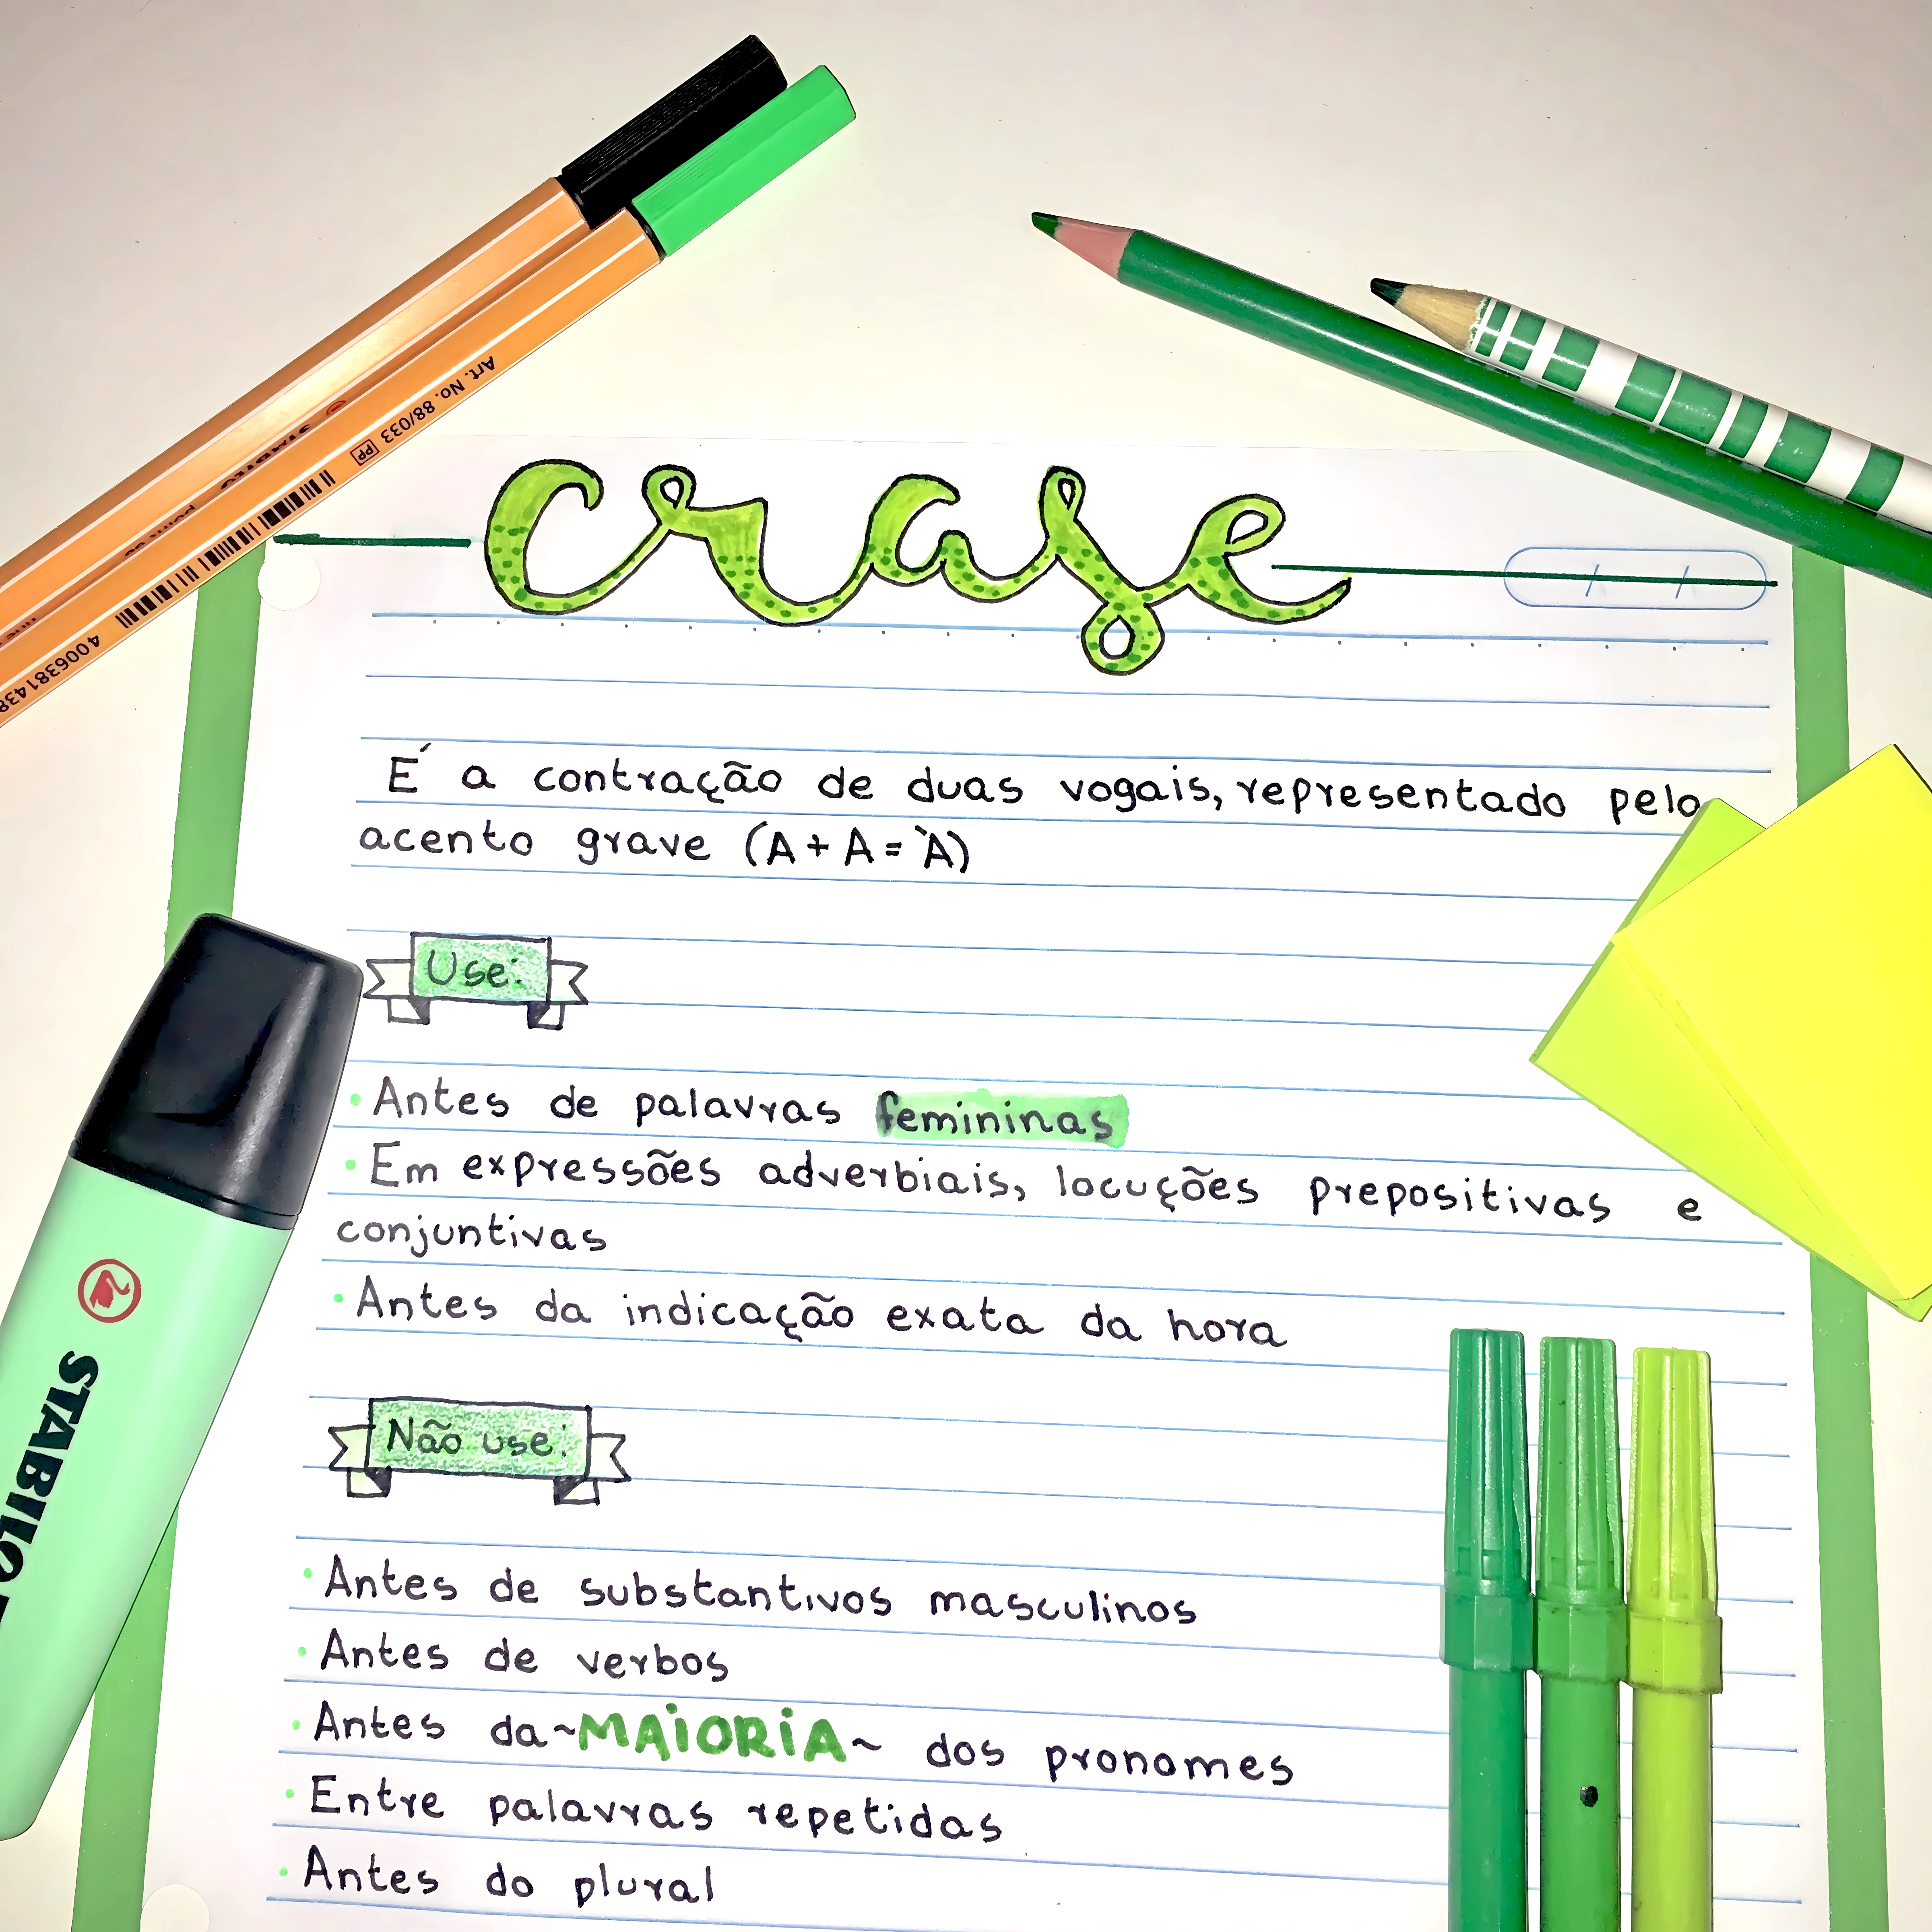 Art. No. 88/033
PP
4 006381 438
crase
É a contração de duas vogais, representado pelo
acento grave (A + A = À)
Use:
• Antes de palavras femininas
• Em expressões adverbiais, locuções prepositivas e
conjuntivas
• Antes da indicação exata da hora
STABILO
Não use:
• Antes de substantivos masculinos
• Antes de verbos
• Antes da ~MAiORiA~ dos pronomes
• Entre palavras repetidas
• Antes do plural